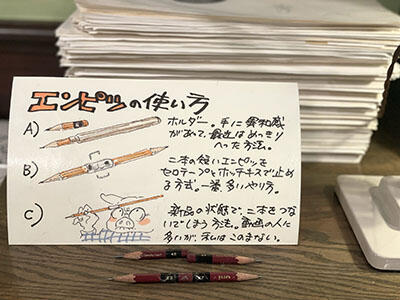 エンピツの使い方
A)
ホルダー。手に違和感
があって、最近はめっきり
へった方法。
B)
二本の短いエンピツを
セロテープとホッチキスで止め
る方式。一番、多いやり方。
C)
新品の状態で、二本をつない
でしまう方法。動画の人に
多いが、私はこのまない。